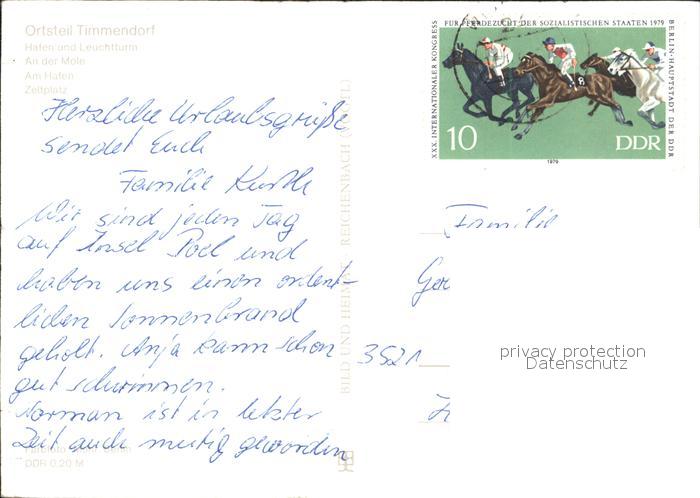 Ortsteil Timmendorf
Hafen und Leuchtturm
An der Mole
Am Hafen
Zeltplatz
Herzliche Urlaubsgrüße
sendet Euch
Familie Kurth
Wir sind jeden Tag
auf Insel Poel und
haben uns einen ordent-
lichen Sonnenbrand
geholt. Anja kann schon
gut schwimmen.
Norman ist in letzter
Zeit auch mutig geworden
DDR 0,20 M
BILD UND HEIMAT REICHENBACH
XXX. INTERNATIONALER KONGRESS
FÜR PFERDEZUCHT DER SOZIALISTISCHEN STAATEN 1979
BERLIN-HAUPTSTADT DER DDR
8
10
DDR
1979
Familie
Ger
3521
privacy protection
Datenschutz